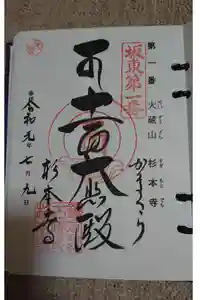 第一番 大蔵山 杉本寺
すぎもとでら
坂東第一番
かまくら
十一面大悲殿
杉本寺
奉拝 令和元年七月九日